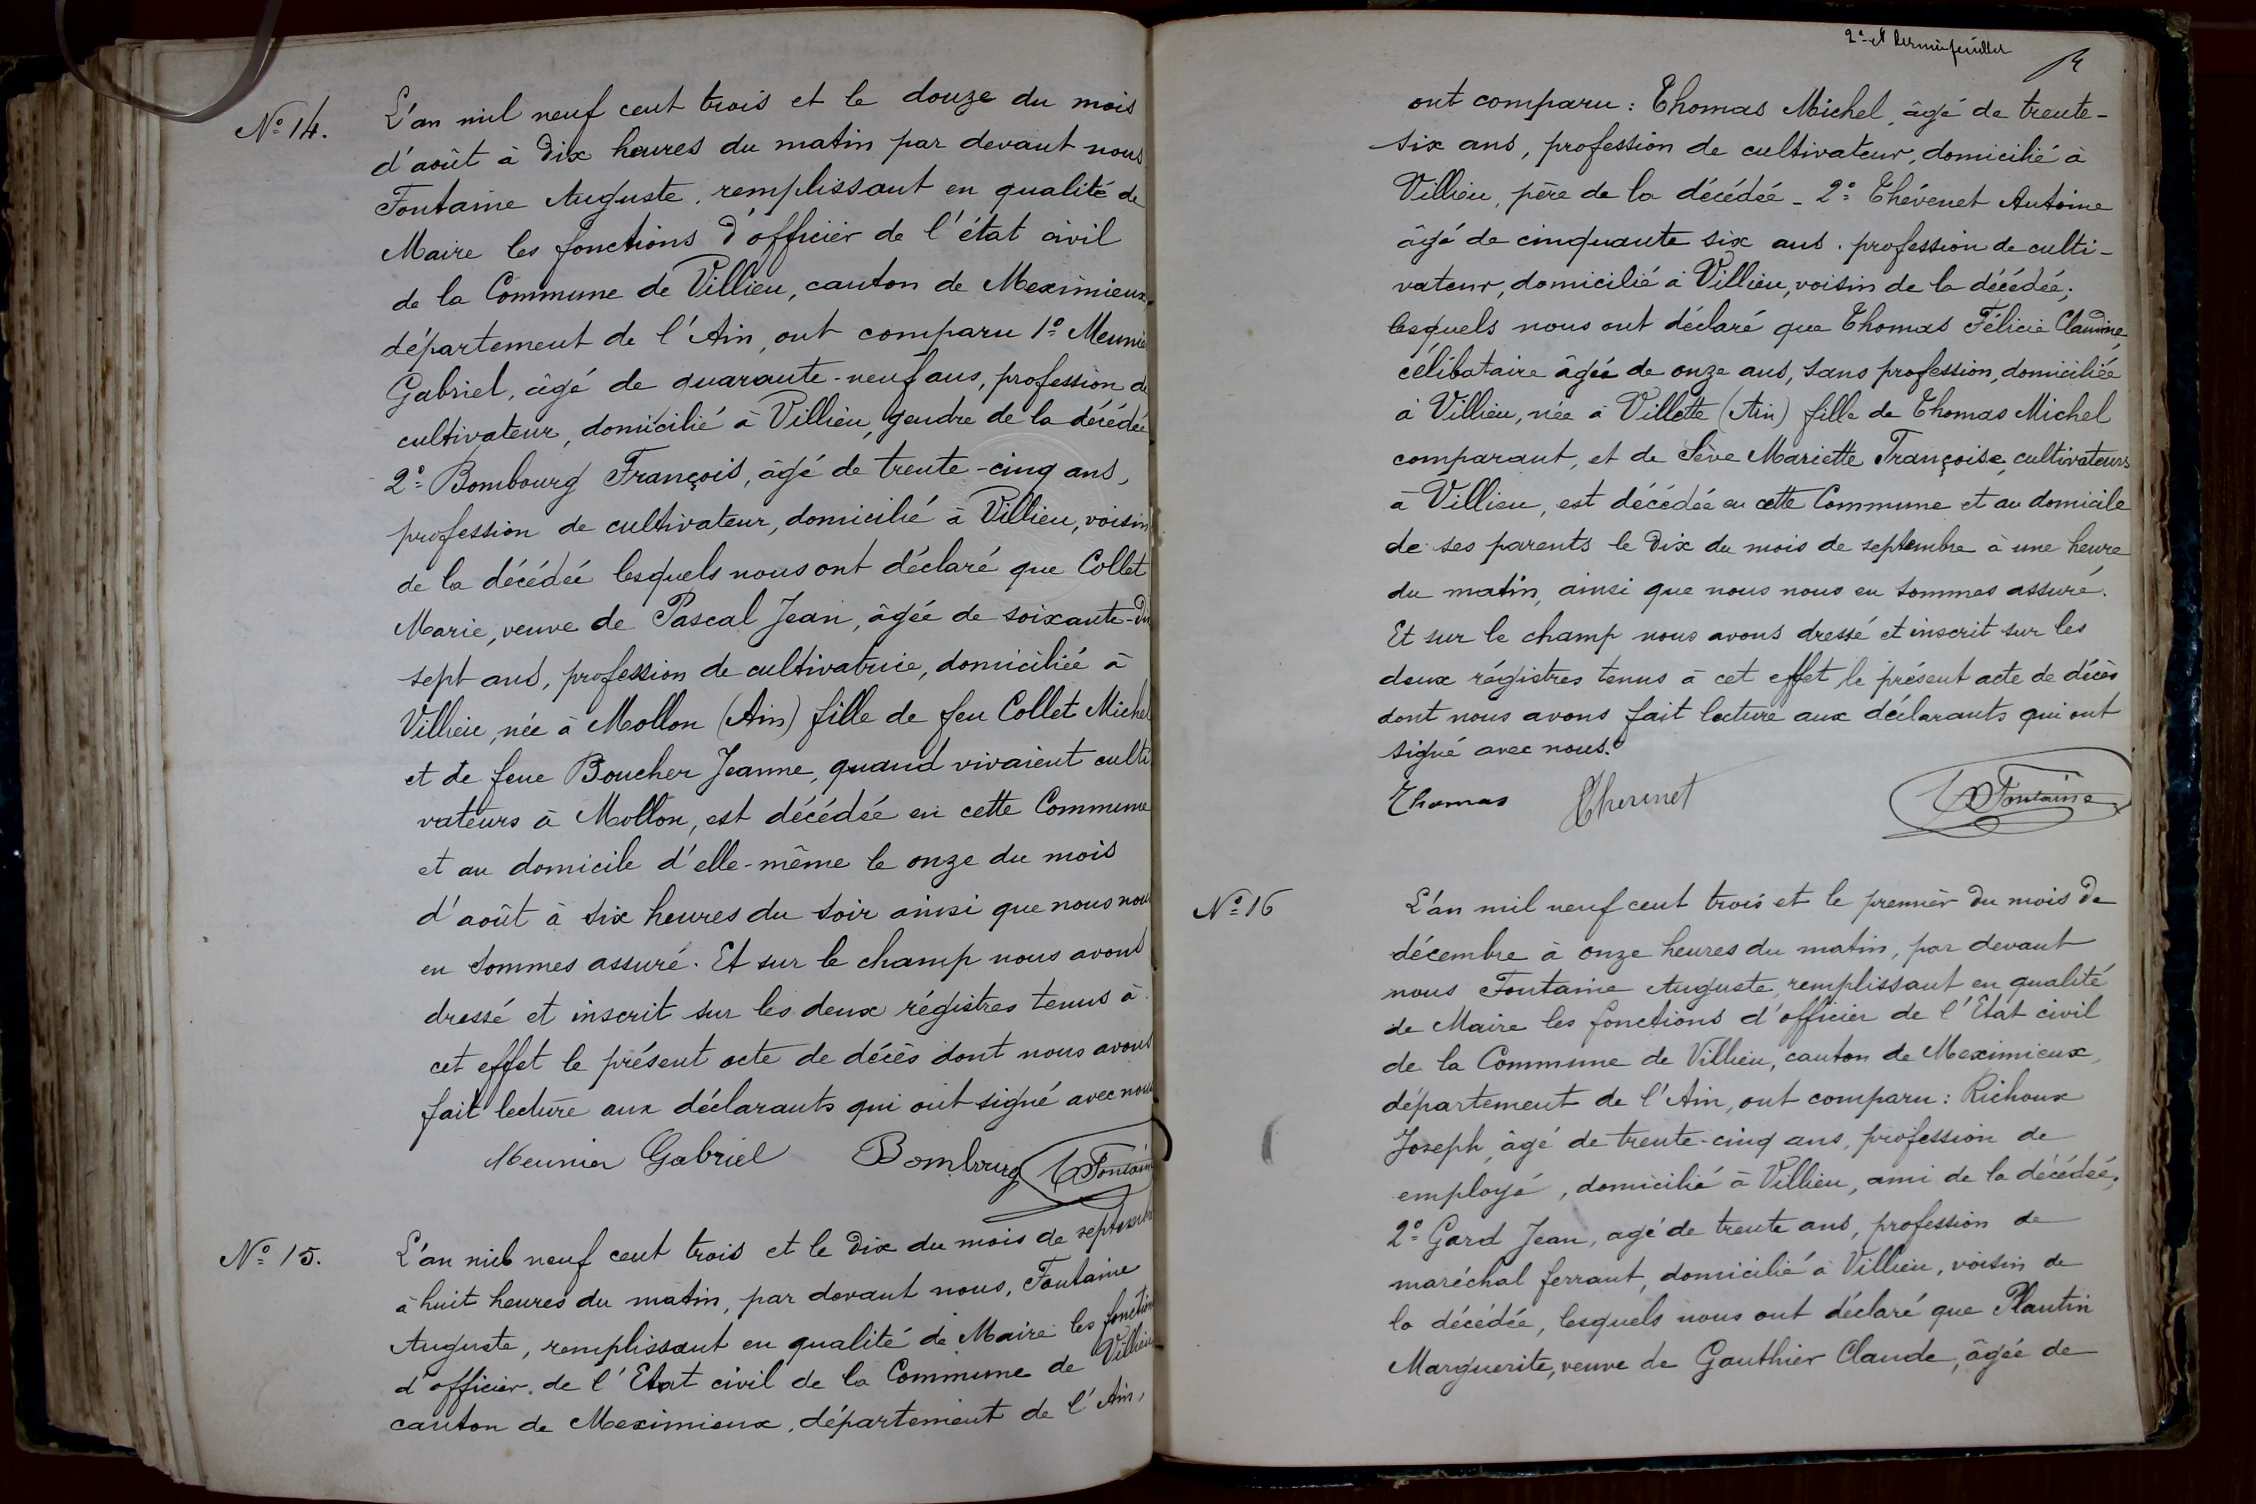 N° 14.
L'an mil neuf cent trois et le douze du mois
d'août à dix heures du matin par devant nous
Fontaine Auguste, remplissant en qualité de
Maire les fonctions d'officier de l'état civil
de la Commune de Villieu, canton de Meximieux,
département de l'Ain, ont comparu 1° Meunier
Gabriel, âgé de quarante-neuf ans, profession de
cultivateur, domicilié à Villieu, gendre de la décédée
2° Bombourg François, âgé de trente-cinq ans,
profession de cultivateur, domicilié à Villieu, voisin
de la décédée lesquels nous ont déclaré que Collet
Marie, veuve de Pascal Jean, âgée de soixante-dix
sept ans, profession de cultivatrice, domiciliée à
Villieu, née à Mollon (Ain) fille de feu Collet Michel
et de feue Boucher Jeanne, quand vivaient culti
vateurs à Mollon, est décédée en cette Commune
et au domicile d'elle-même le onze du mois
d'août à six heures du soir ainsi que nous nous
en sommes assuré. Et sur le champ nous avons
dressé et inscrit sur les deux régistres tenus à
cet effet le présent acte de décès dont nous avons
fait lecture aux déclarants qui ont signé avec nous
Meunier Gabriel Bombourg Fontaine
N° 15.
L'an mil neuf cent trois et le dix du mois de septembre
à huit heures du matin, par devant nous, Fontaine
Auguste, remplissant en qualité de Maire les fonctions
d'officier de l'Etat civil de la Commune de Villieu
canton de Meximieux, département de l'Ain,
2e et dernier feuillet
ont comparu : Thomas Michel, âgé de trente-
six ans, profession de cultivateur, domicilié à
Villieu, père de la décédée - 2° Thévenet Antoine
âgé de cinquante six ans. profession de culti-
vateur, domicilié à Villieu, voisin de la décédée;
lesquels nous ont déclaré que Thomas Félicie Claudine
célibataire âgée de onze ans, sans profession, domiciliée
à Villieu, née à Villette (Ain) fille de Thomas Michel
comparant, et de Sève Mariette Françoise, cultivateurs
à Villieu, est décédée en cette Commune et au domicile
de ses parents le dix du mois de septembre à une heure
du matin, ainsi que nous nous en sommes assuré.
Et sur le champ nous avons dressé et inscrit sur les
deux régistres tenus à cet effet le présent acte de décès
dont nous avons fait lecture aux déclarants qui ont
signé avec nous.
Thomas Thevenet Fontaine
N° 16
L'an mil neuf cent trois et le premier du mois de
décembre à onze heures du matin, par devant
nous Fontaine Auguste, remplissant en qualité
de Maire les fonctions d'officier de l'Etat civil
de la Commune de Villieu, canton de Meximieux,
département de l'Ain, ont comparu : Richoux
Joseph, âgé de trente-cinq ans, profession de
employé, domicilié à Villieu, ami de la décédée,
2° Gard Jean, agé de trente ans, profession de
maréchal ferrant, domicilié à Villieu, voisin de
la décédée, lesquels nous ont déclaré que Plantin
Marguerite, veuve de Gauthier Claude, âgée de